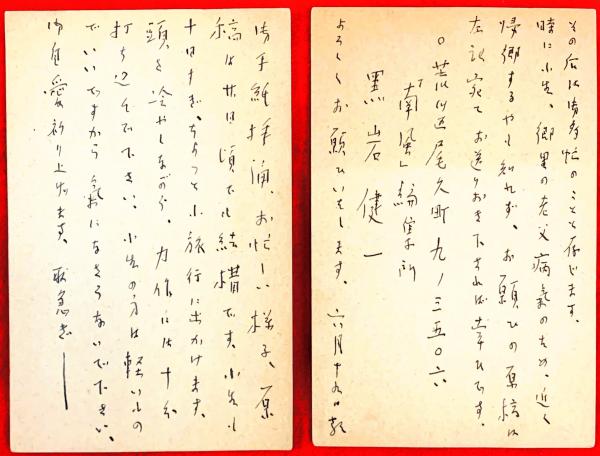 その后は御多忙のことと存じます。
時に小生、郷里の老父病氣のため、近く
帰郷するやも知れず、お願ひの原稿は
左記宛てお送りおき下されば幸ひです。
○荒川区尾久町九ノ三五〇六
「南風」編集所
黒岩健一
よろしくお願ひいたします。 六月十九日
御手紙拝誦、お忙しい様子、原
稿は廿日頃でも結構です。小生も
十日すぎ、ちょっと小旅行に出かけます。
頭を冷やしながら、力作には十分
打ち込んで下さい、小生の方は軽いもの
でいいですから氣になさらないで下さい。
御自愛祈り上げます。 取急ぎ